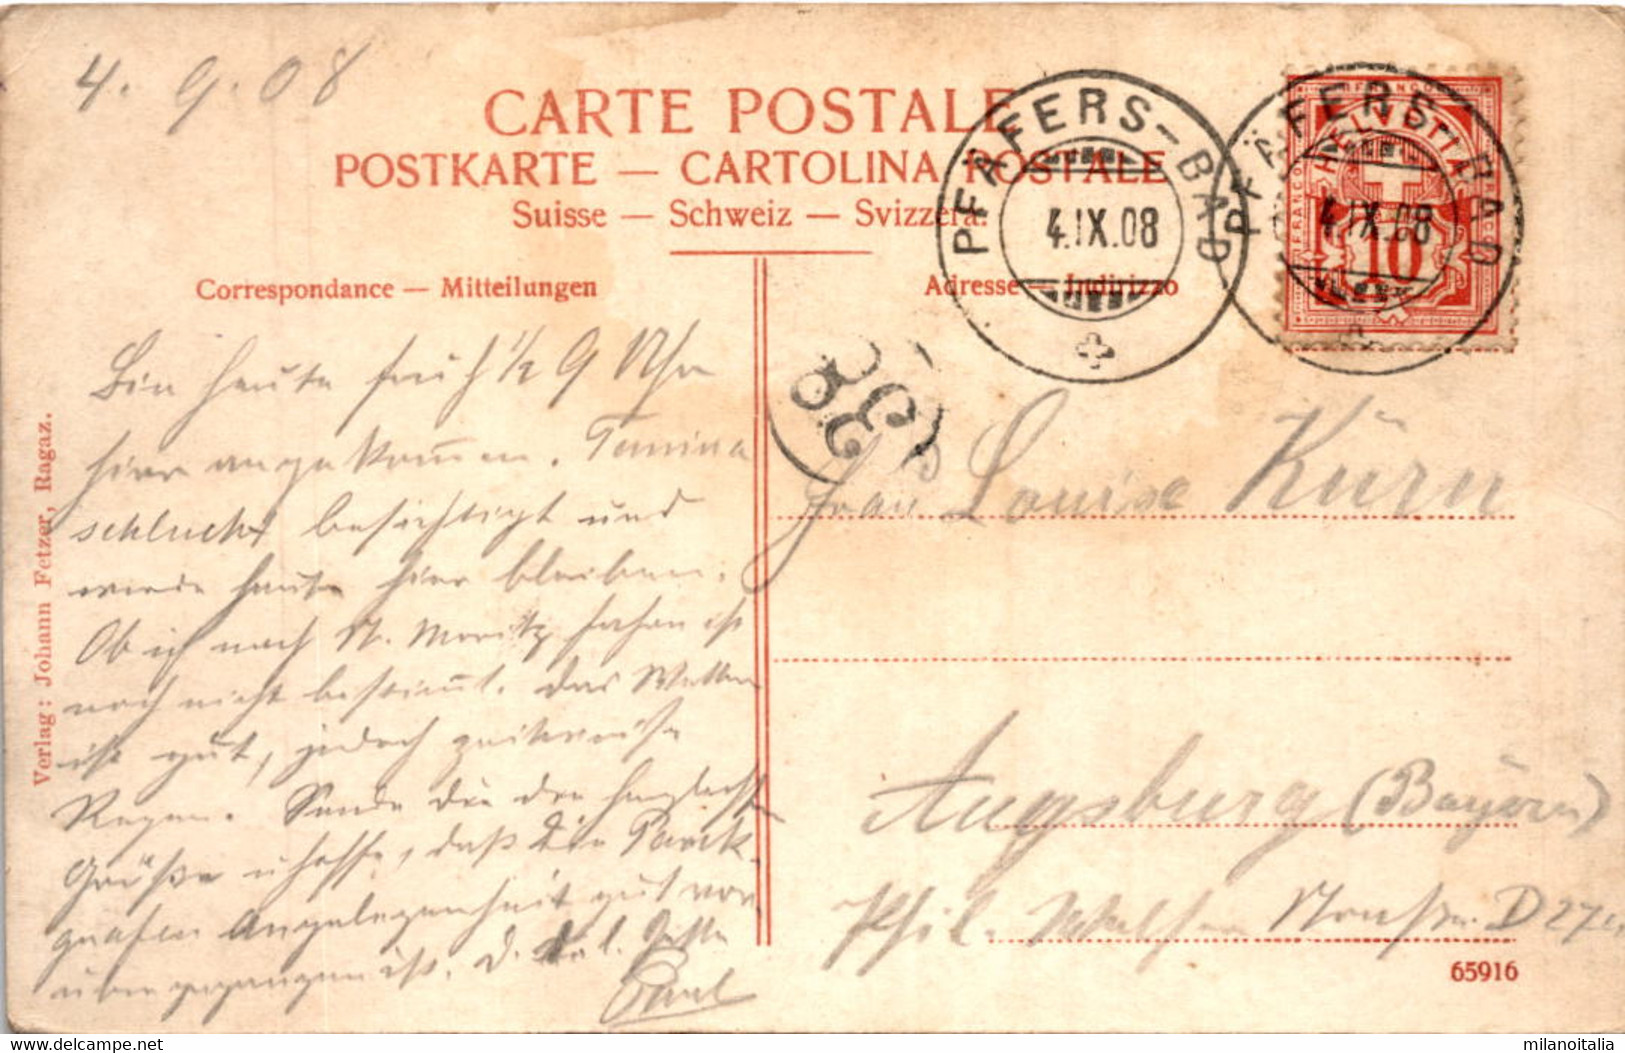 4. 9. 08
CARTE POSTALE
POSTKARTE — CARTOLINA POSTALE
Suisse — Schweiz — Svizzera.
Correspondance — Mitteilungen
Adresse — Indirizzo
PFÄFERS-BAD
4.IX.08
PFÄFERS-BAD
4.IX.08
HELVETIA
FRANCO
FRANCO
10
Bin heute früh 1/2 9 Uhr
hier angekommen. Tamina
schlucht besichtigt und
werde heute hier bleiben.
Ob ich nach St. Moritz fahre ist
noch nicht bestimmt. Das Wetter
ist gut, jedoch zeitweise
Regen. Sende Dir die herzlichsten
Grüße u hoffe, daß Die
Angelegenheit gut vor
über gegangen ist. D. Dich l.
Paul
Frau Louise Kürn
Augsburg (Bayern)
Phil. Welser Straße D 27
Verlag: Johann Fetzer, Ragaz.
65916
milanoitalia